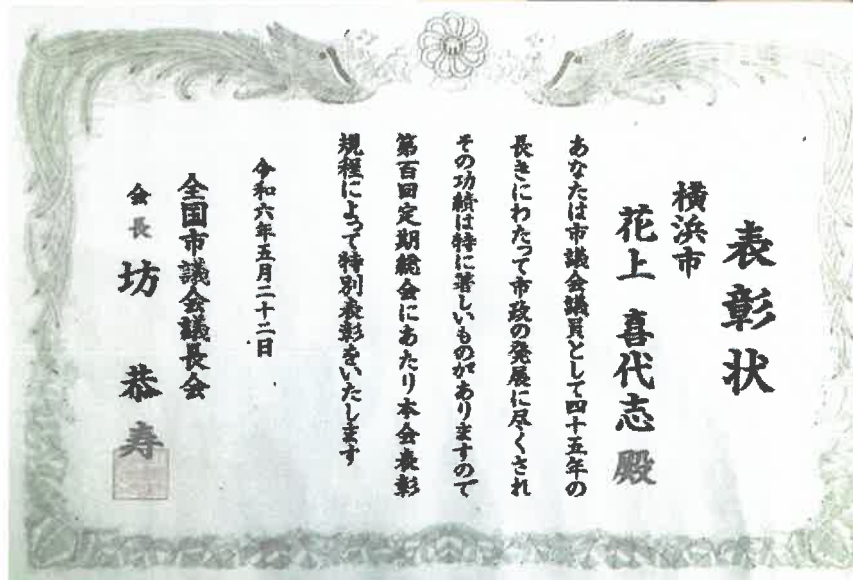 表彰状
横浜市
花上 喜代志 殿
あなたは市議会議員として四十五年の
長きにわたって市政の発展に尽くされ
その功績は特に著しいものがありますので
第百回定期総会にあたり本会表彰
規程によって特別表彰をいたします
令和六年五月二十二日
全国市議会議長会
会長 坊 恭寿